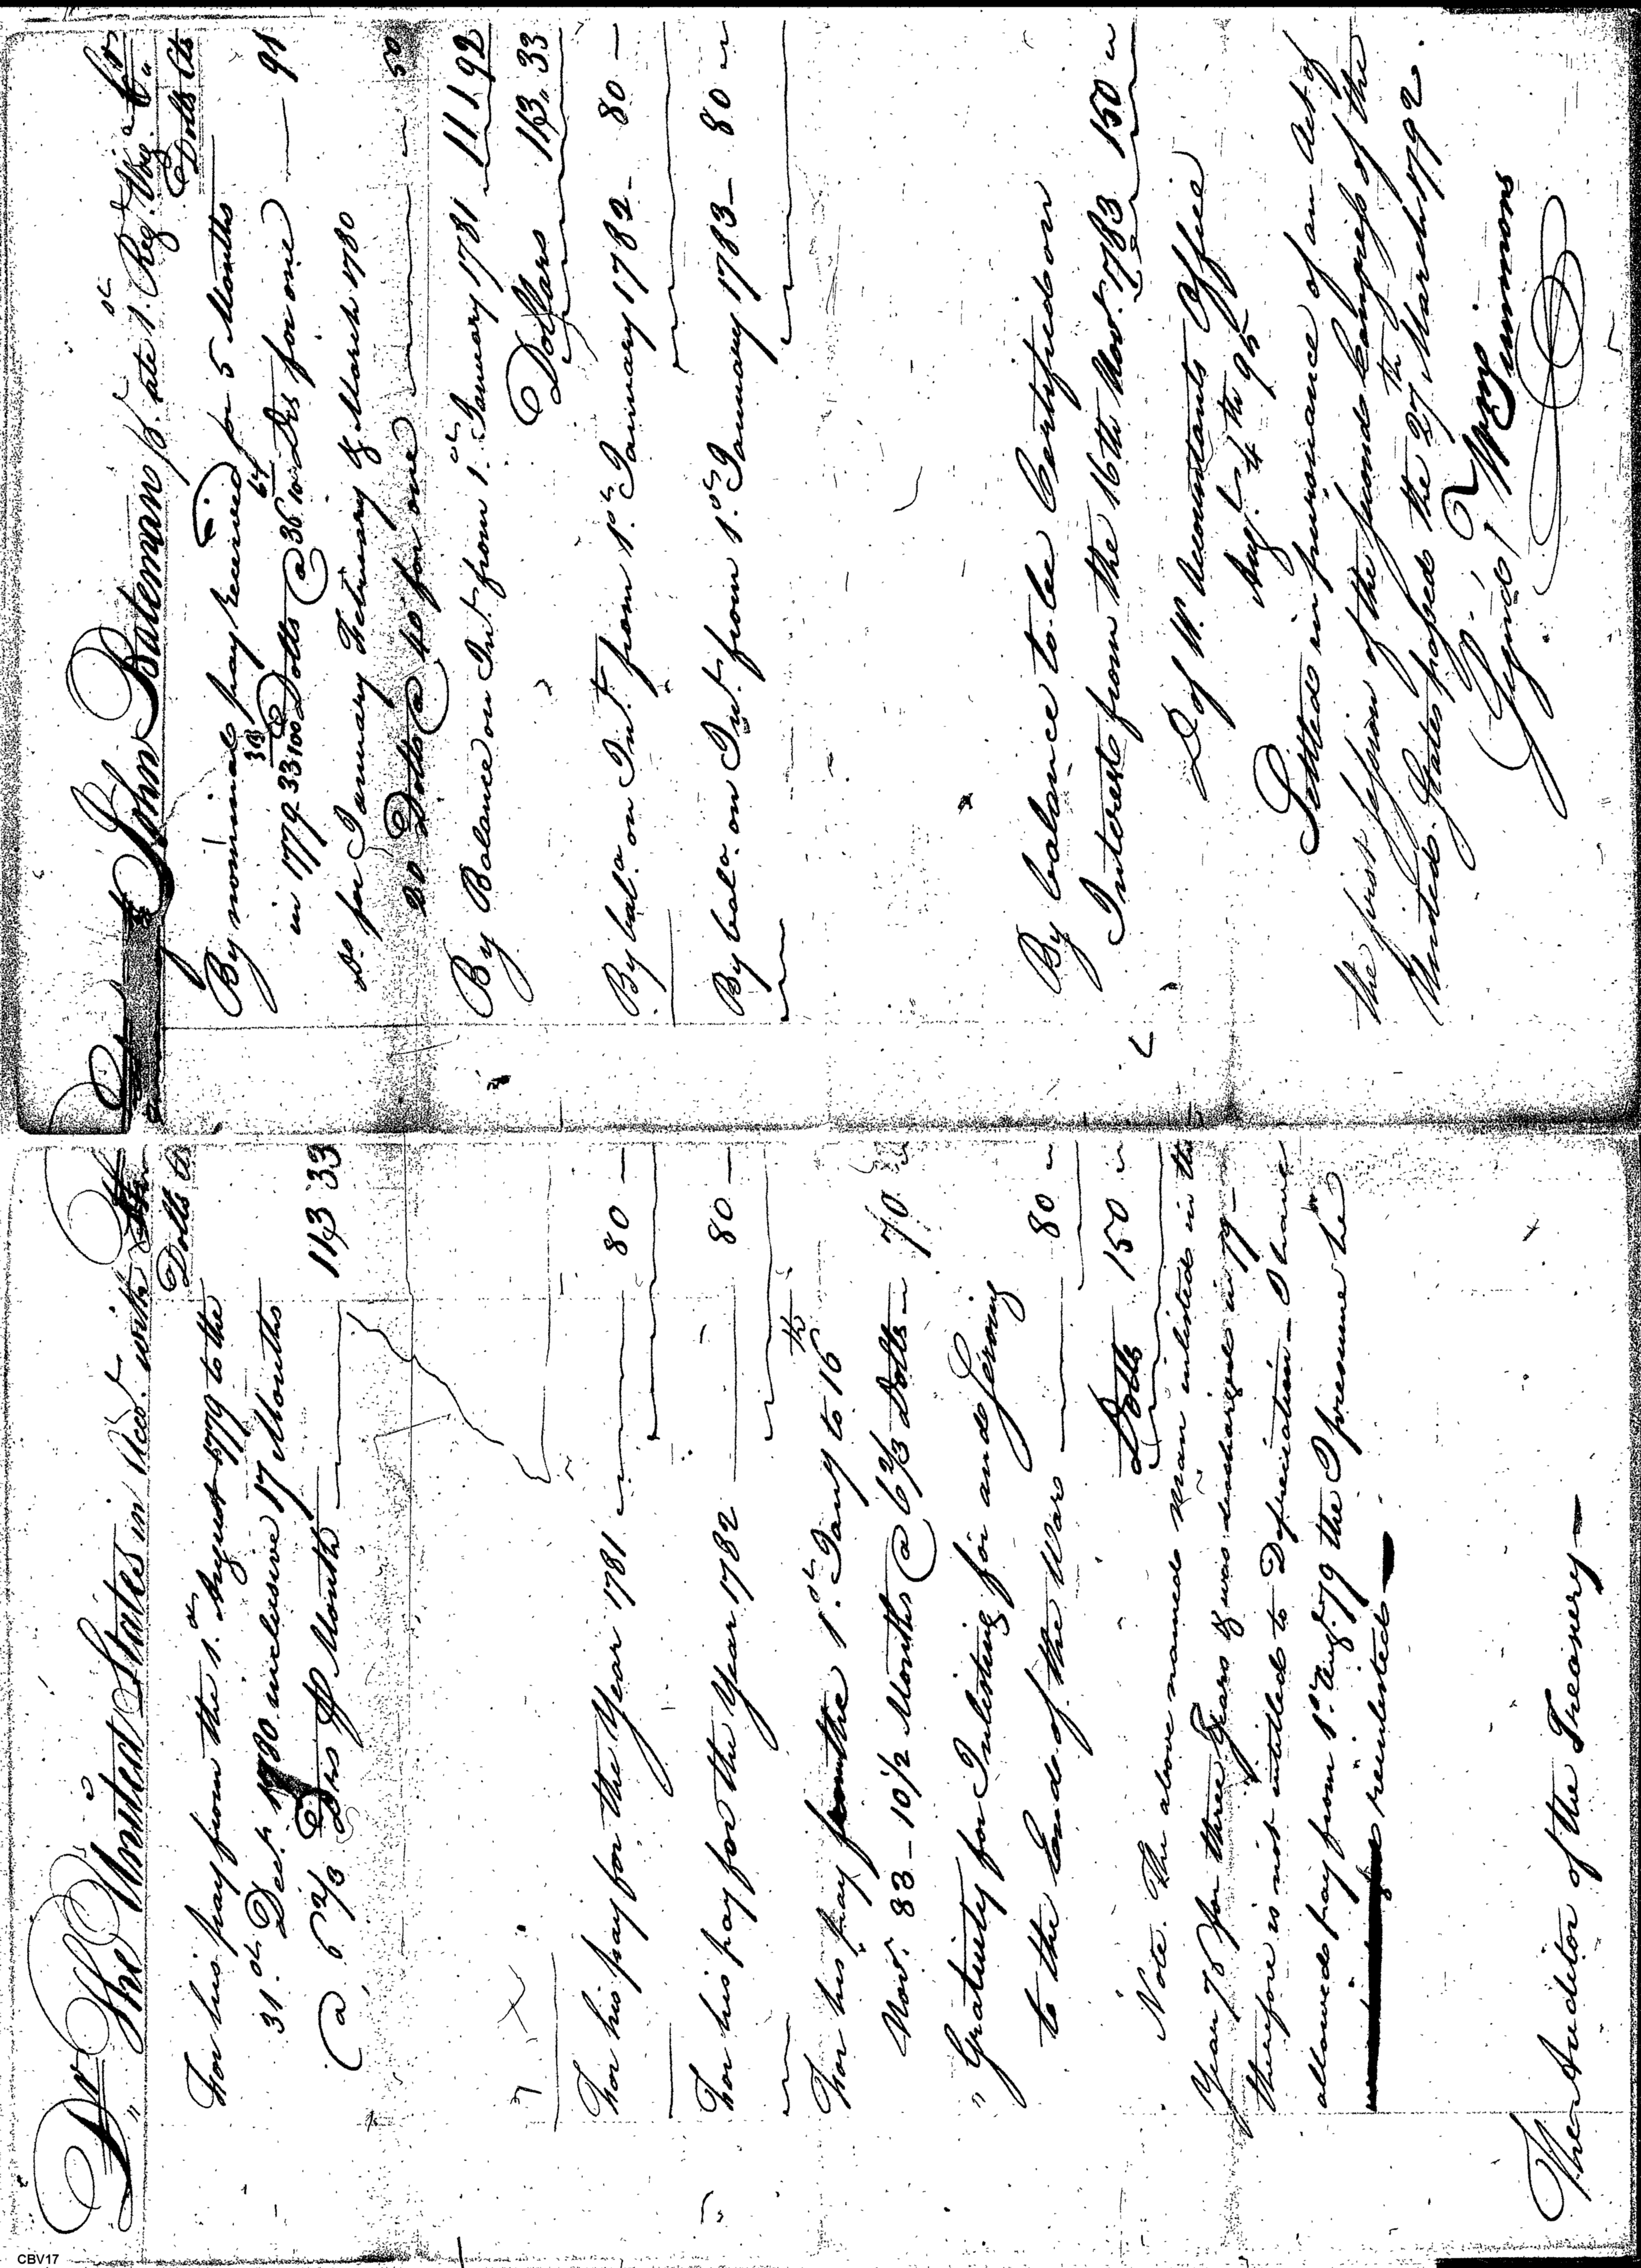 Dr The United States in Acco.t with
Dolls Cts
For his pay from the 1.st August 1779 to the
31.st Dec.r 1780 inclusive 17 Months
@ 6 2/3 Drs pr Month 113 33
For his pay for the Year 1781 80 —
For his pay for the Year 1782 80 —
For his pay from the 1.st Jany to 16th
Nov.r 83 – 10 1/2 Months @ 6 2/3 Dolls 70 "
" Gratuity for Inlisting for and Serving
to the End of the War 80 "
Dolls 150 "
Note. The above named man inlisted in the
Year 76 for three Years & was discharged in 79 –
therefore is not intitled to Depreciation – I have
allowed pay from 1.st Aug.t 79 the I presume he
reinlisted —
The Auditor of the Treasury —
John Bateman late 1.st Reg.t Virg.a Cr
Dolls Cts
By nominal pay received for 5 Months
in 1779 33 33/100 Dolls @ 36 64/10 Drs for one — 91
Do for January February & March 1780
20 Dolls @ 40 for one 50
By Balance on Int.t from 1.st January 1781 111 92
Dollars 113 33
By bal.a on Int.t from 1.st January 1782 – 80 —
By bal.a on Int.t from 1.st January 1783 – 80 "
By balance to be Certified on
Interest from the 16th Nov.r 1783 150 "
D of W. Accountants Office
Aug.t 4th 95
Settled in pursuance of an Act of
the first session of the second Congress of the
United States passed the 27th March 1792.
Signed / Wm Simmons
CBV17